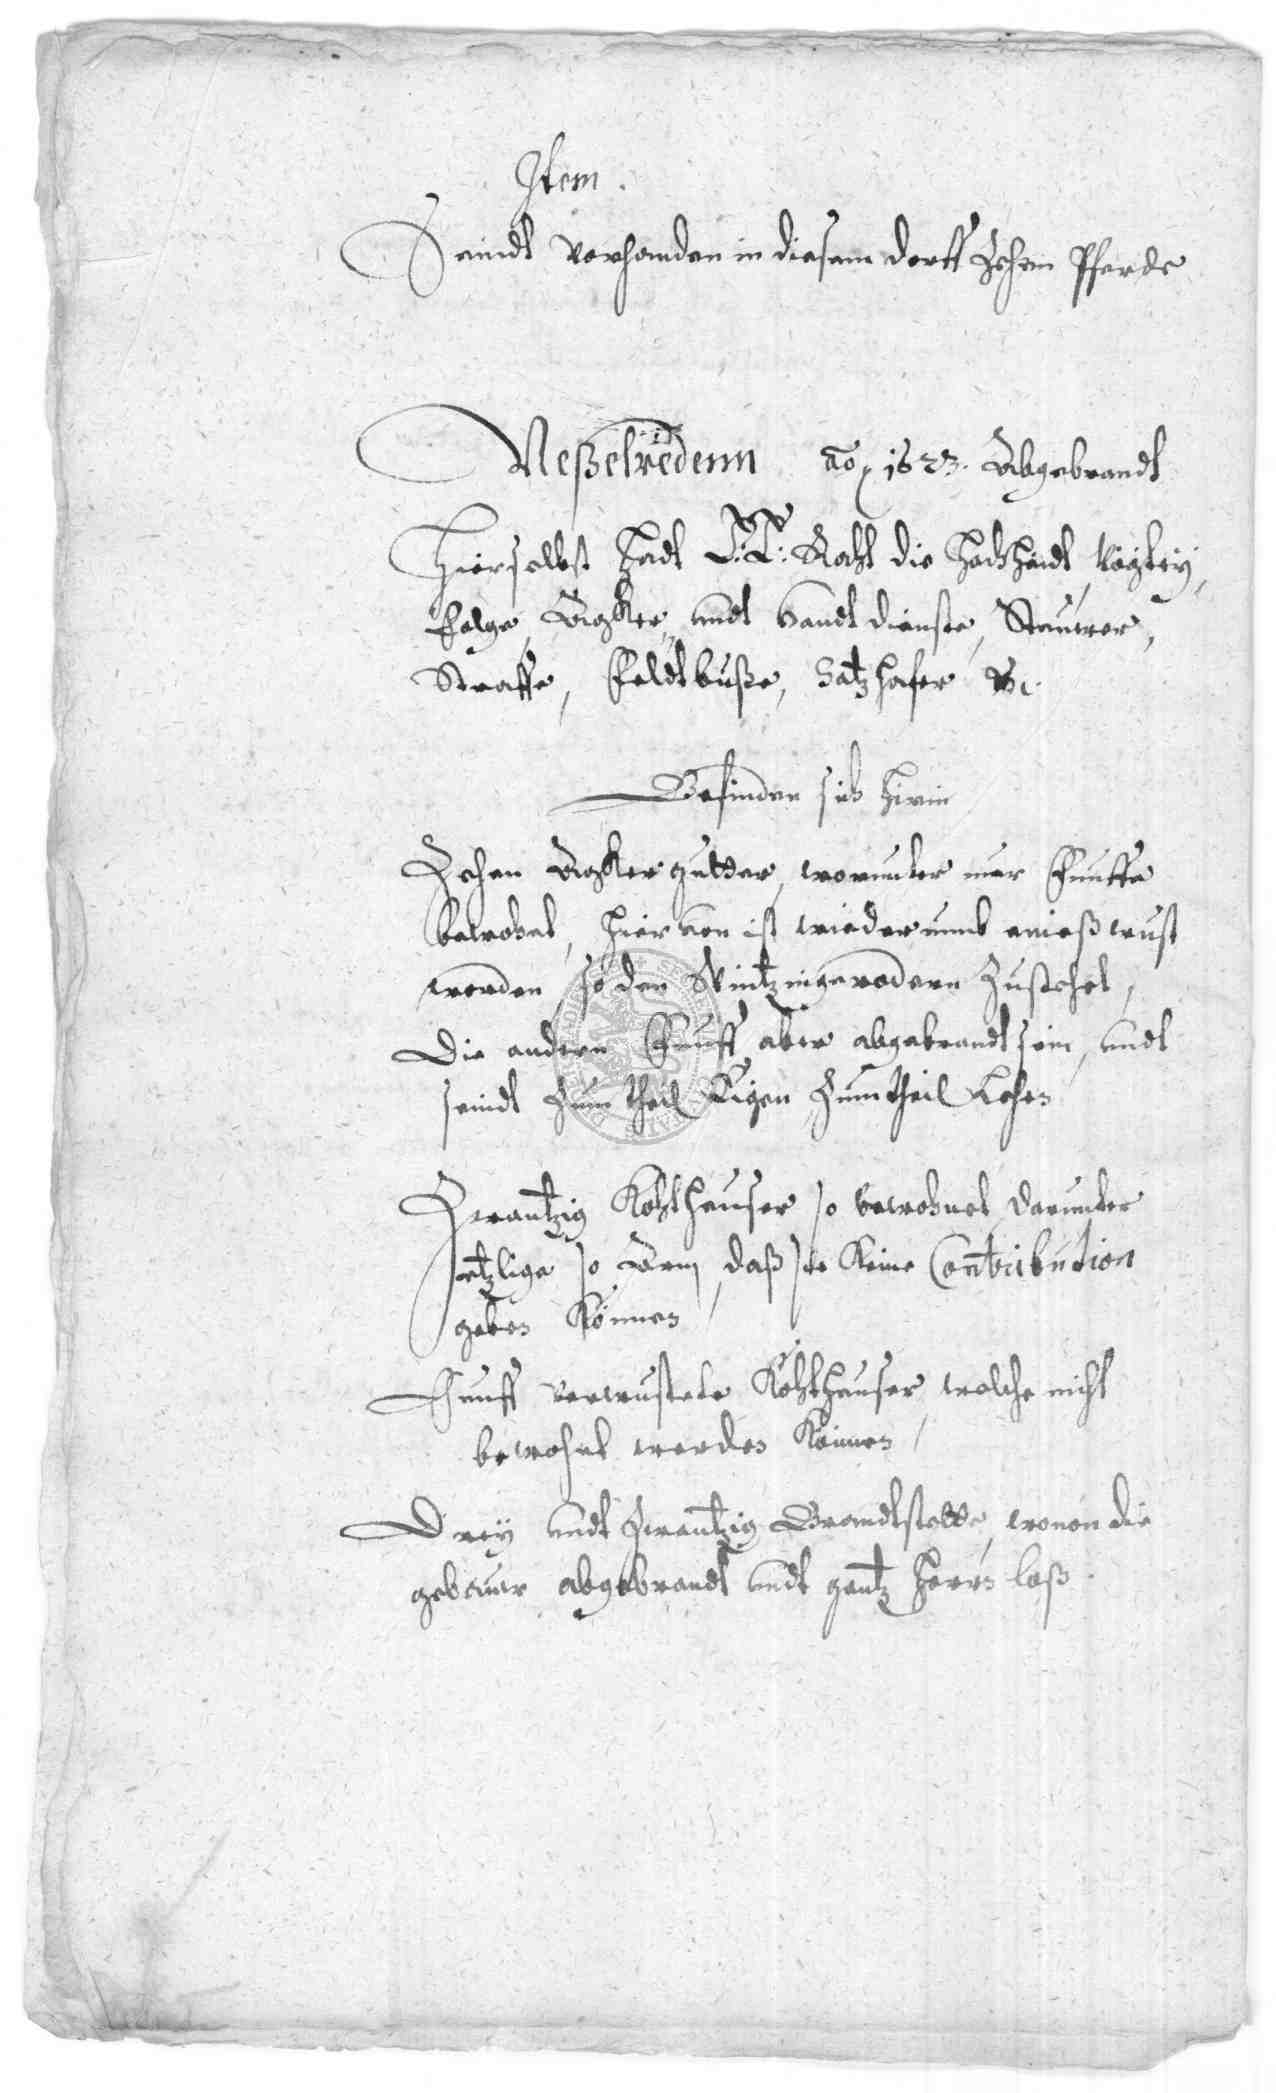 Item.
Seindt verhanden in diesem dorff Zehen Pferde
Neßelredenn Ao 1623. Abgebrandt
Hierselbst hadt E: E: Raht die hochheidt, Vogtey,
Folge, Acker, undt handtdienste, Steuwer,
Straffe, Feldtbuße, Satzhafer
Befinden sich hirin
Zehen Ackergutter, worunter nur Funffe
bewohnt, hier von ist wiederumb eineß wust
worden, so den Wintzingerodern Zustehet,
Die andern Funff aber abgebrandt sein, undt
seindt Zum theil Eigen Zum theil Lehen
Zwantzig Kohthauser so bewohnet darunter
etzlige so Arm, daß sie Keine Contribution
geben Können
Funff verwustete Kohthauser, welche nicht
bewohnt werden Können
Drey undt Zwantzig Brandtstette, wovon die
gebauwr abgebrandt undt gantz herrn loß.